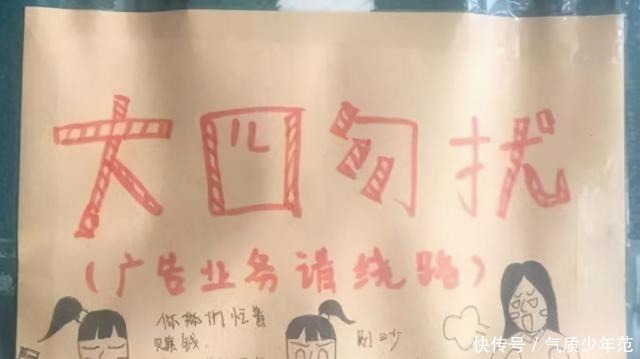 大四勿扰
(广告业务请绕路)
你们忙着
赚钱.
快传号 / 气质少年范